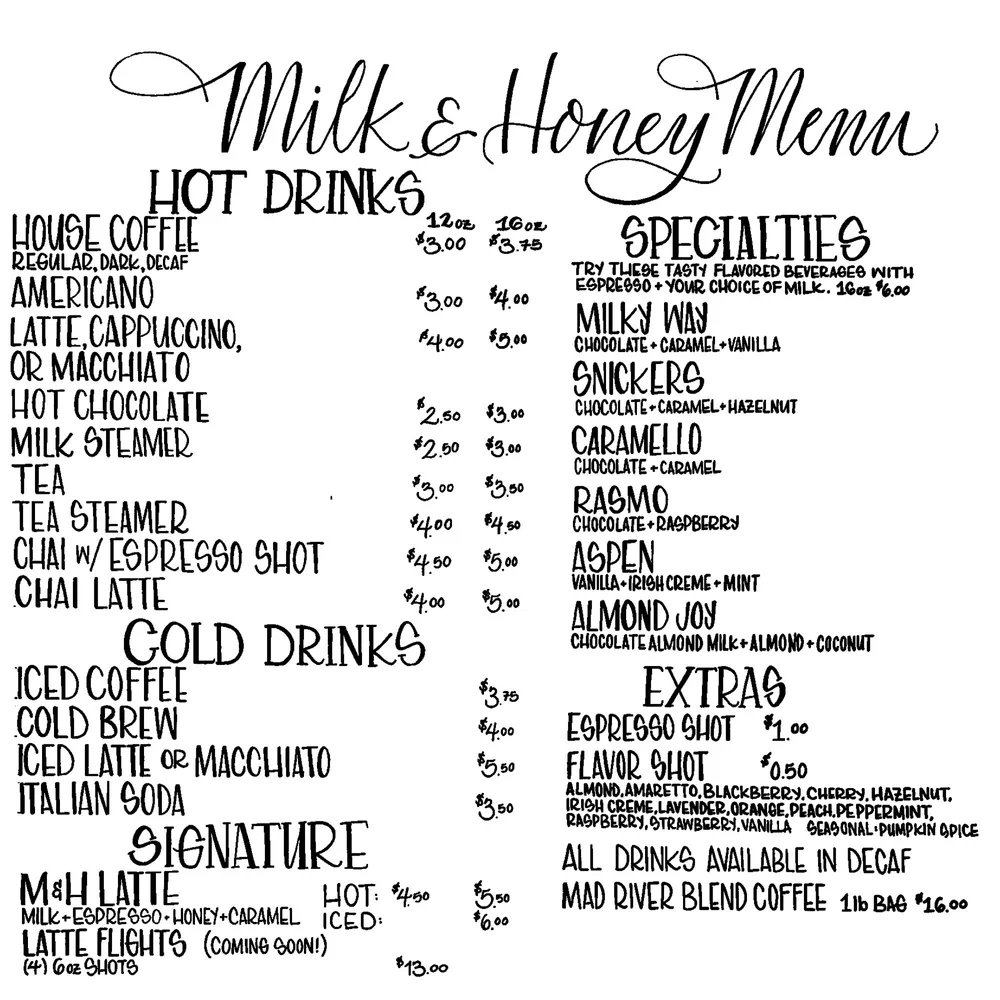 Milk & Honey Menu
HOT DRINKS
12oz 16oz
HOUSE COFFEE $3.00 $3.75
REGULAR, DARK, DECAF
AMERICANO $3.00 $4.00
LATTE, CAPPUCCINO, $4.00 $5.00
OR MACCHIATO
HOT CHOCOLATE $2.50 $3.00
MILK STEAMER $2.50 $3.00
TEA $3.00 $3.50
TEA STEAMER $4.00 $4.50
CHAI W/ ESPRESSO SHOT $4.50 $5.00
CHAI LATTE $4.00 $5.00
COLD DRINKS
ICED COFFEE $3.75
COLD BREW $4.00
ICED LATTE OR MACCHIATO $5.50
ITALIAN SODA $3.50
SIGNATURE
M&H LATTE HOT: $4.50 $5.50
MILK+ESPRESSO+HONEY+CARAMEL ICED: $6.00
LATTE FLIGHTS (COMING SOON!)
(4) 6oz SHOTS $13.00
SPECIALTIES
TRY THESE TASTY FLAVORED BEVERAGES WITH
ESPRESSO + YOUR CHOICE OF MILK. 16oz $6.00
MILKY WAY
CHOCOLATE + CARAMEL + VANILLA
SNICKERS
CHOCOLATE + CARAMEL + HAZELNUT
CARAMELLO
CHOCOLATE + CARAMEL
RASMO
CHOCOLATE + RASPBERRY
ASPEN
VANILLA + IRISH CREME + MINT
ALMOND JOY
CHOCOLATE ALMOND MILK + ALMOND + COCONUT
EXTRAS
ESPRESSO SHOT $1.00
FLAVOR SHOT $0.50
ALMOND, AMARETTO, BLACKBERRY, CHERRY, HAZELNUT,
IRISH CREME, LAVENDER, ORANGE, PEACH, PEPPERMINT,
RASPBERRY, STRAWBERRY, VANILLA SEASONAL: PUMPKIN SPICE
ALL DRINKS AVAILABLE IN DECAF
MAD RIVER BLEND COFFEE 1lb BAG $16.00